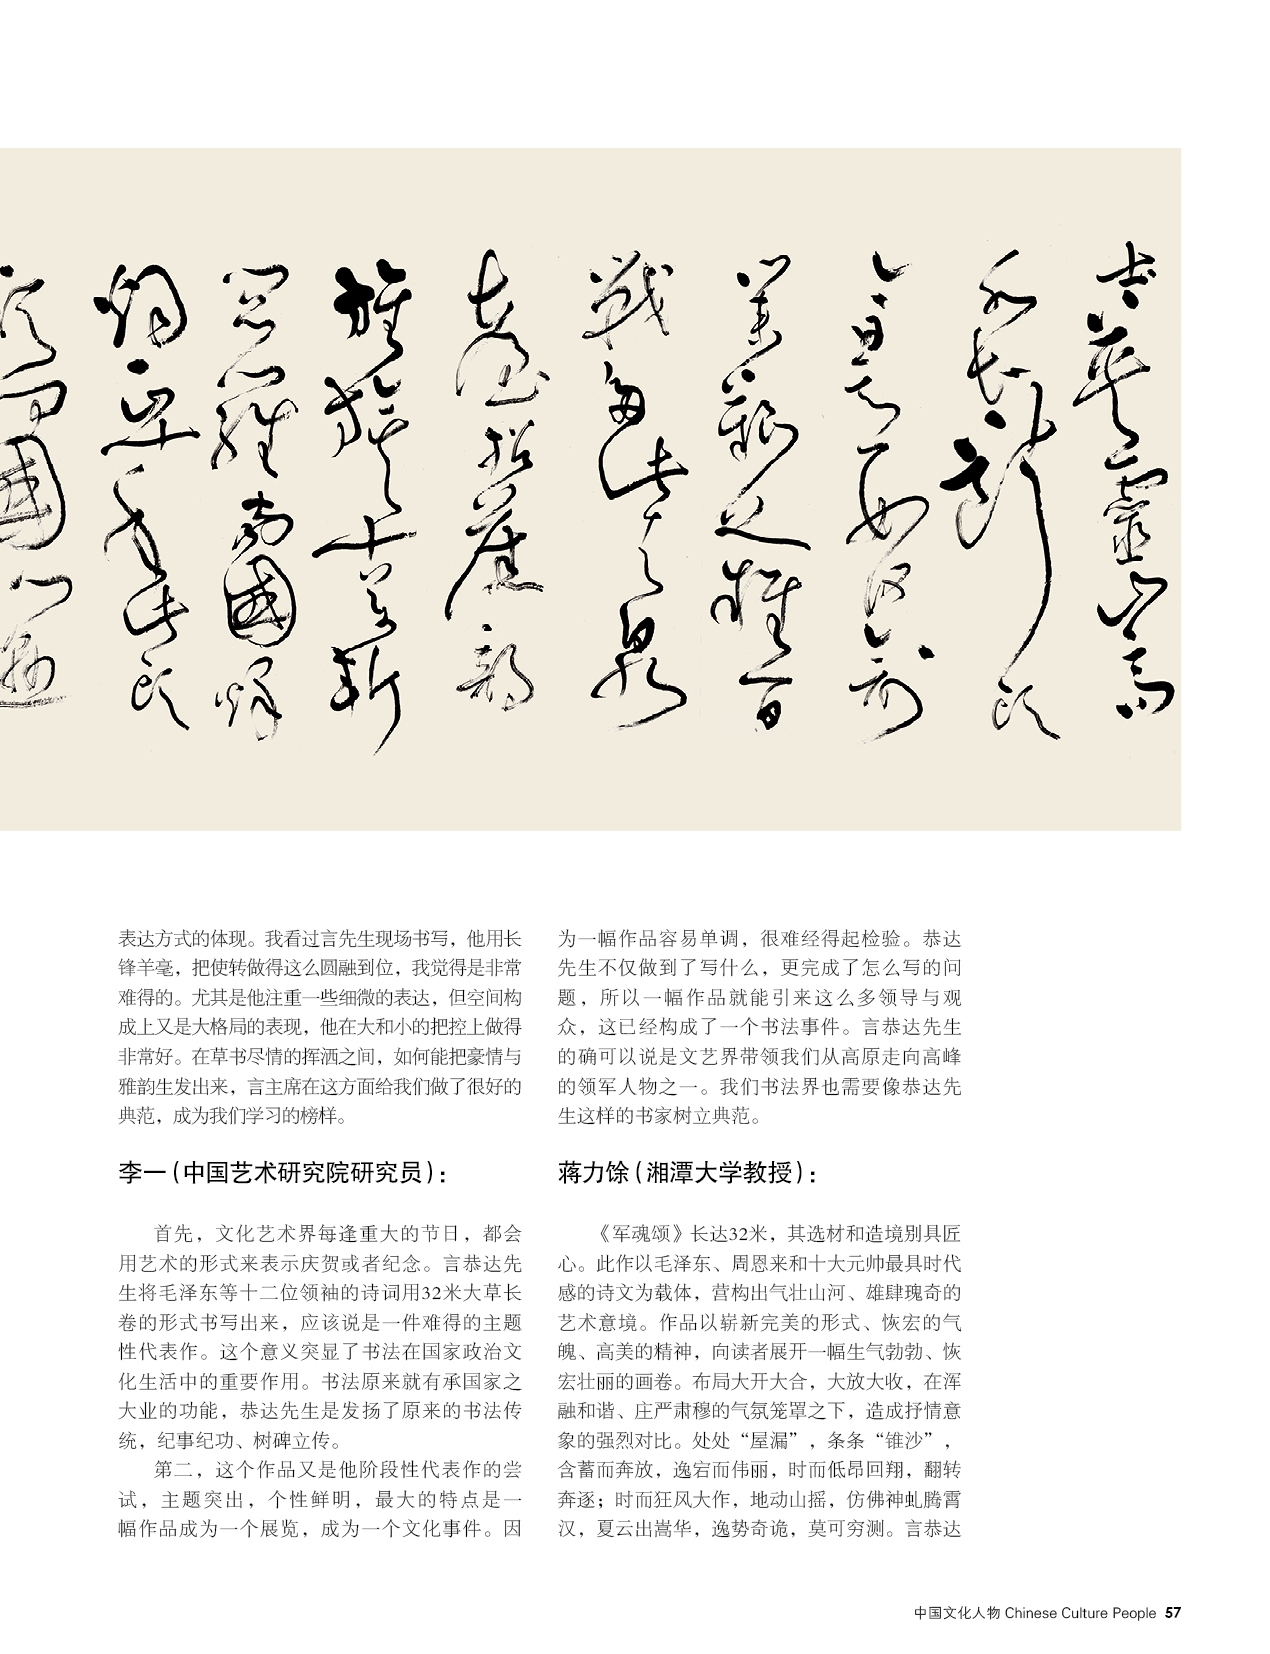 靈山高
水长断頭
今日意如何創
業艱難百
戰多此去泉
臺招舊部
旌旗十萬斬
閻羅南國烽
烟正十年此頭
須向國門懸
表达方式的体现。我看过言先生现场书写，他用长
锋羊毫，把使转做得这么圆融到位，我觉得是非常
难得的。尤其是他注重一些细微的表达，但空间构
成上又是大格局的表现，他在大和小的把控上做得
非常好。在草书尽情的挥洒之间，如何能把豪情与
雅韵生发出来，言主席在这方面给我们做了很好的
典范，成为我们学习的榜样。
李一（中国艺术研究院研究员）：
首先，文化艺术界每逢重大的节日，都会
用艺术的形式来表示庆贺或者纪念。言恭达先
生将毛泽东等十二位领袖的诗词用32米大草长
卷的形式书写出来，应该说是一件难得的主题
性代表作。这个意义突显了书法在国家政治文
化生活中的重要作用。书法原来就有承国家之
大业的功能，恭达先生是发扬了原来的书法传
统，纪事纪功、树碑立传。
第二，这个作品又是他阶段性代表作的尝
试，主题突出，个性鲜明，最大的特点是一
幅作品成为一个展览，成为一个文化事件。因
为一幅作品容易单调，很难经得起检验。恭达
先生不仅做到了写什么，更完成了怎么写的问
题，所以一幅作品就能引来这么多领导与观
众，这已经构成了一个书法事件。言恭达先生
的确可以说是文艺界带领我们从高原走向高峰
的领军人物之一。我们书法界也需要像恭达先
生这样的书家树立典范。
蒋力馀（湘潭大学教授）：
《军魂颂》长达32米，其选材和造境别具匠
心。此作以毛泽东、周恩来和十大元帅最具时代
感的诗文为载体，营构出气壮山河、雄肆瑰奇的
艺术意境。作品以崭新完美的形式、恢宏的气
魄、高美的精神，向读者展开一幅生气勃勃、恢
宏壮丽的画卷。布局大开大合，大放大收，在浑
融和谐、庄严肃穆的气氛笼罩之下，造成抒情意
象的强烈对比。处处“屋漏”，条条“锥沙”，
含蓄而奔放，逸宕而伟丽，时而低昂回翔，翻转
奔逐；时而狂风大作，地动山摇，仿佛神虬腾霄
汉，夏云出嵩华，逸势奇诡，莫可穷测。言恭达
中国文化人物 Chinese Culture People 57